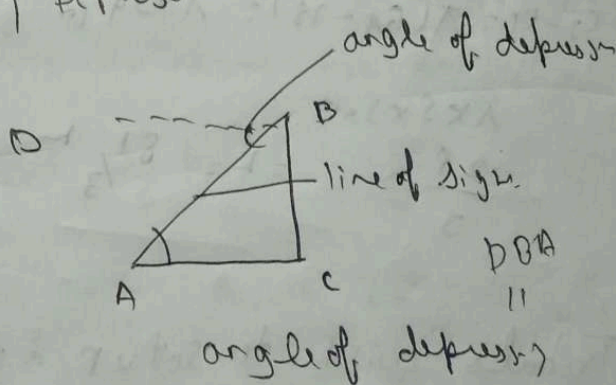 angle of depress
D
B
line of sigh
A
C
DBA
=
angle of depress